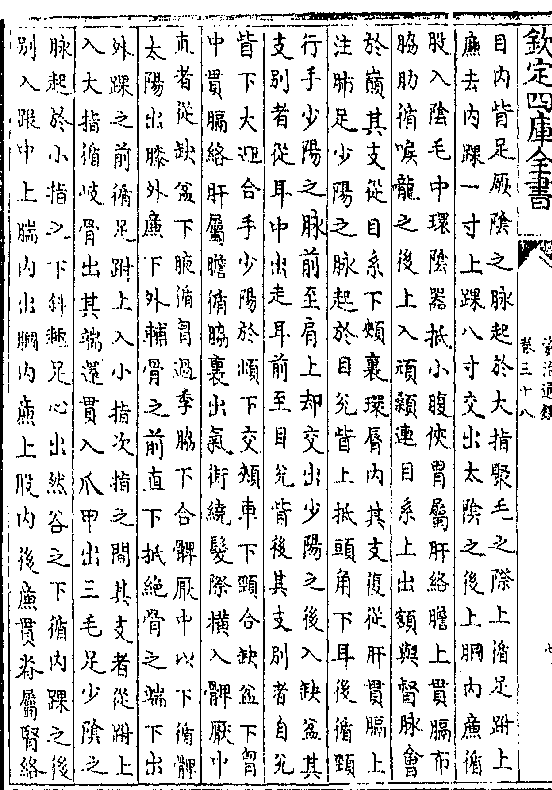 欽定四庫全書
資治通鑑
卷三十八
七
目內眥足厥陰之脉起於大指聚毛之際上循足跗上
廉去內踝一寸上踝八寸交出太陰之後上膕內廉循
股入陰毛中環陰器抵小腹俠胃屬肝絡膽上貫膈布
脇肋循喉嚨之後上入頏顙連目系上出額與督脉會
於巓其支從目系下頰裏環脣內其支復從肝貫膈上
注肺足少陽之脉起於目兊眥上抵頭角下耳後循頸
行手少陽之脉前至肩上却交出少陽之後入缺盆其
支别者從耳中出走耳前至目兊眥後其支别者自兊
眥下大迎合手少陽於䪼下交頰車下頸合缺盆下胷
中貫膈絡肝屬膽循脇裏出氣街繞髮際横入髀厭中
直者從缺盆下腋循胷過季脇下合髀厭中以下循髀
太陽出膝外廉下外輔骨之前直下抵絶骨之端下出
外踝之前循足跗上入小指次指之間其支者從跗上
入大指循岐骨出其端還貫入爪甲出三毛足少陰之
脉起於小指之下斜趣足心出然谷之下循內踝之後
别入跟中上腨內出膕內廉上股內後廉貫脊屬腎絡